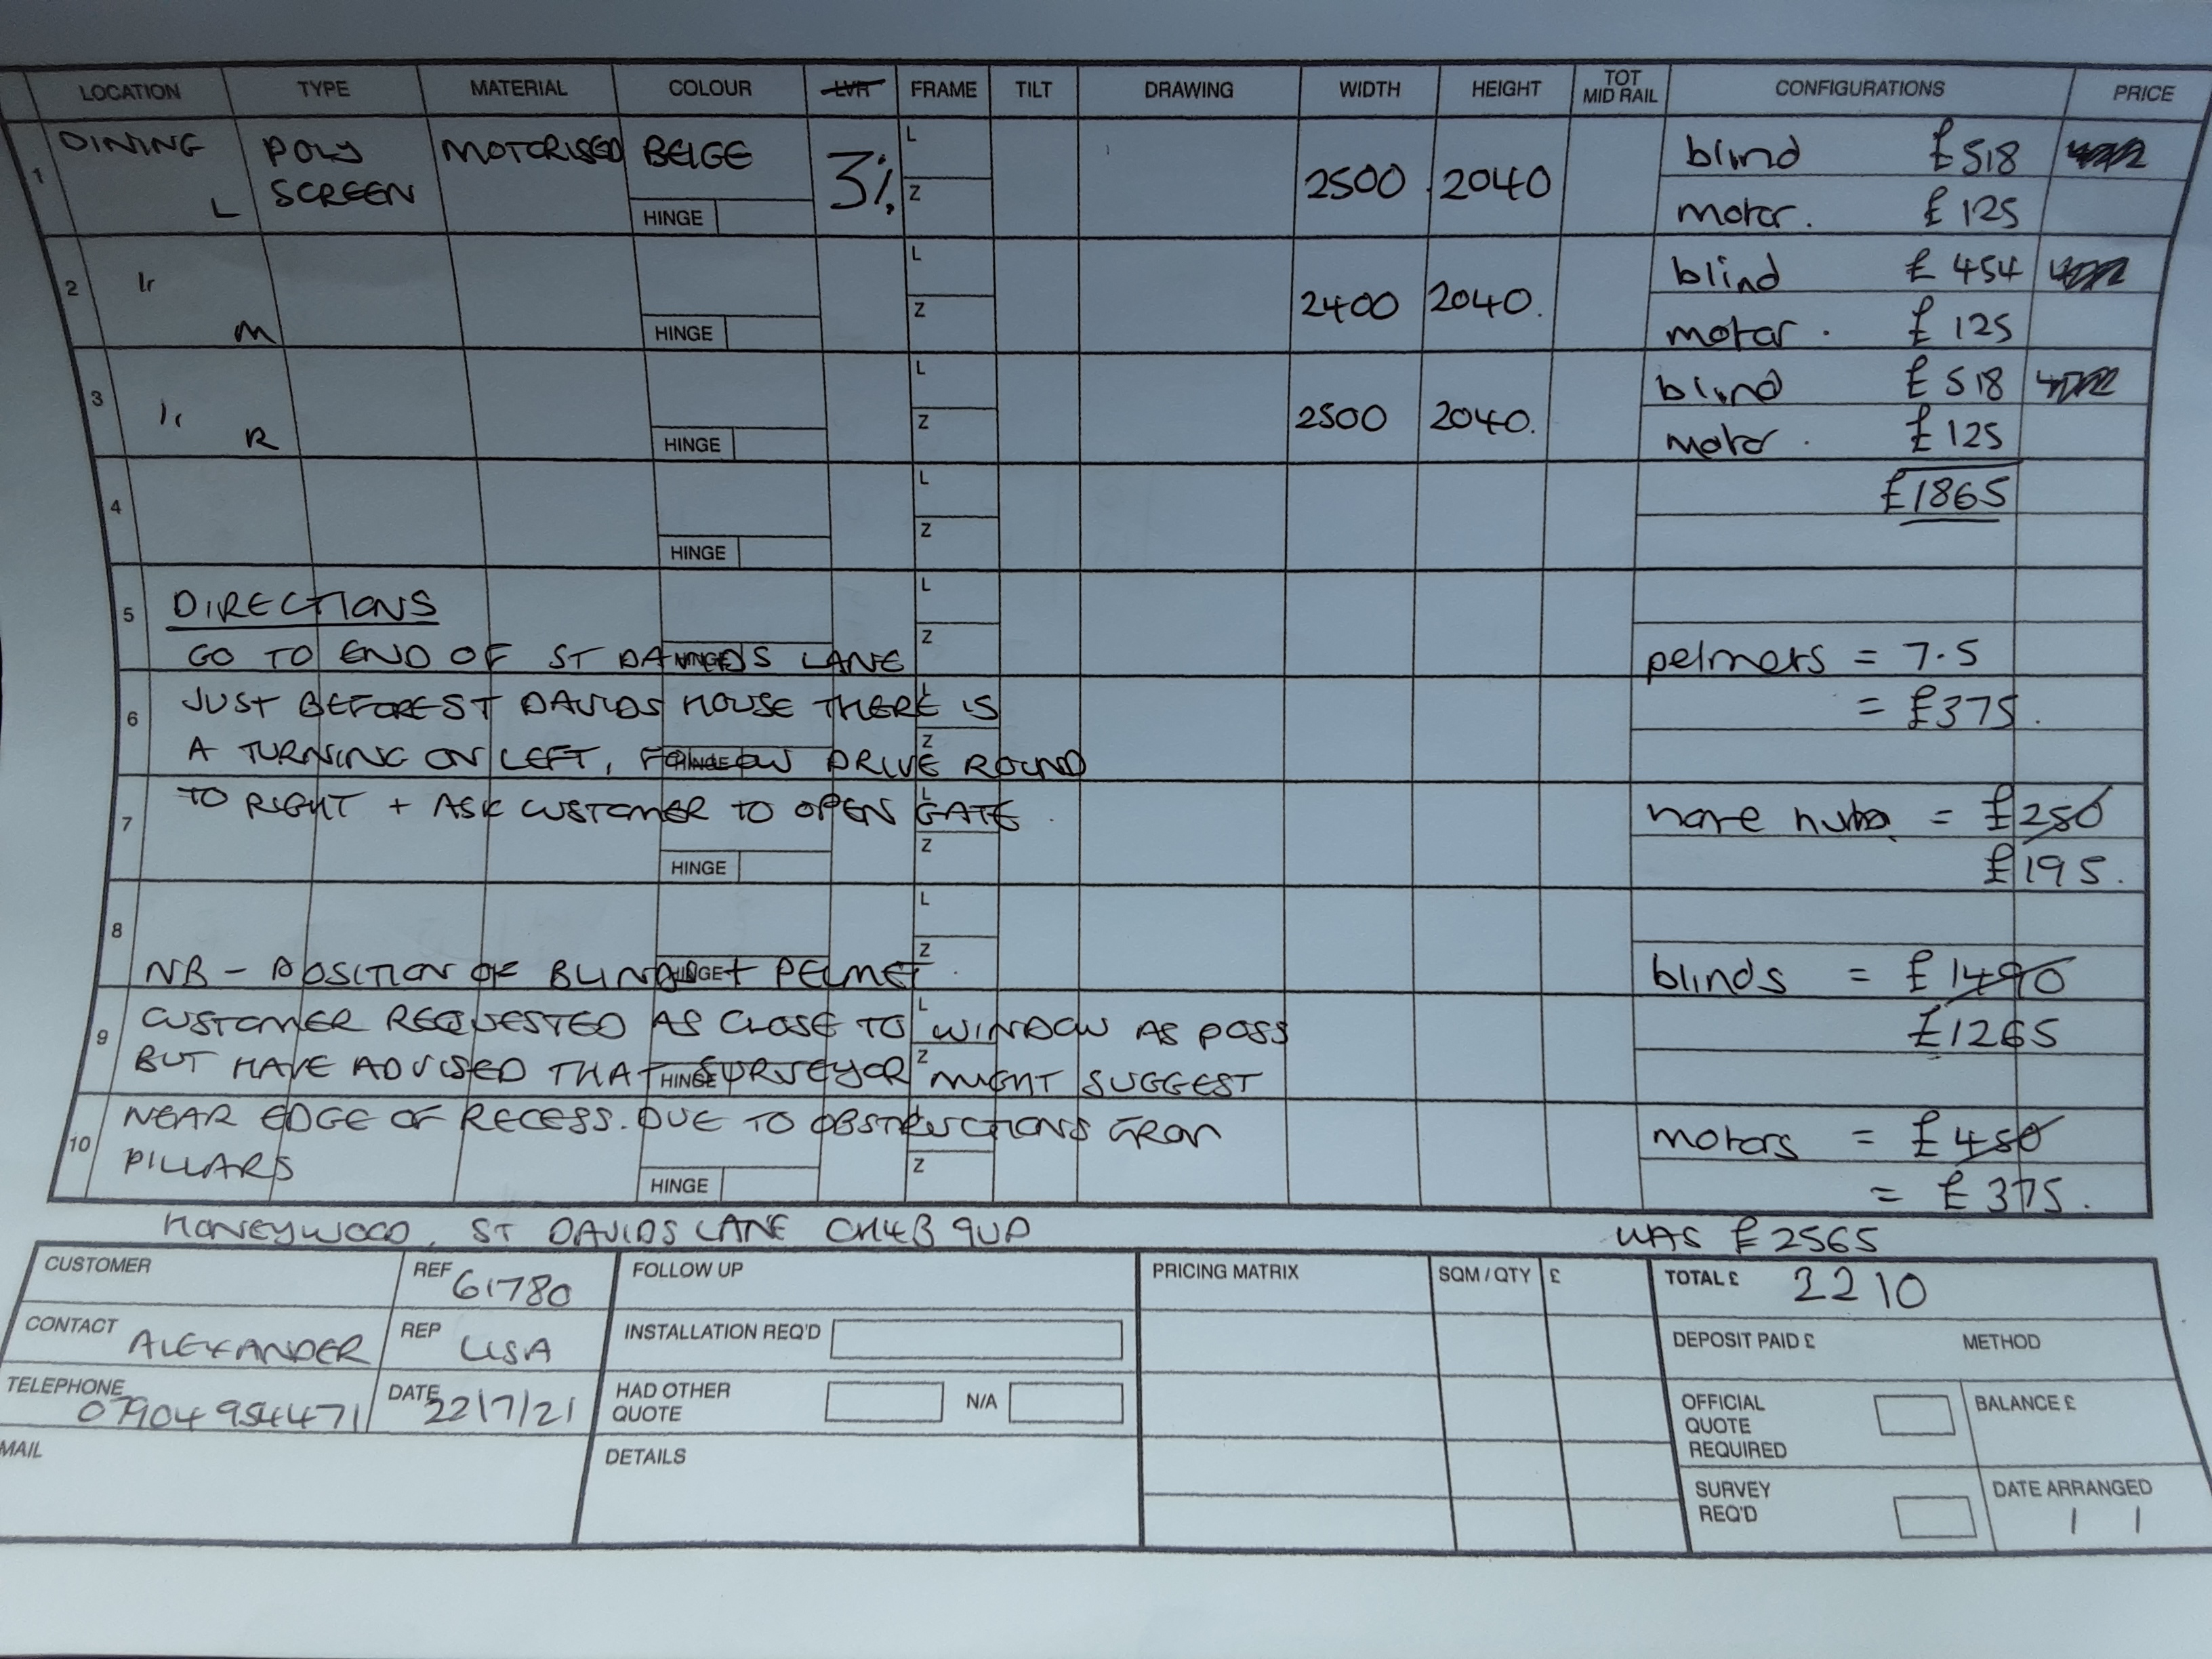 LOCATION TYPE MATERIAL COLOUR LVR FRAME TILT DRAWING WIDTH HEIGHT TOT MID RAIL CONFIGURATIONS PRICE
1 DINING L POLY SCREEN MOTORISED BEIGE HINGE 3% L Z 2500 2040 blind £518
motor. £125
2 " M HINGE L Z 2400 2040. blind £454
motor. £125
3 " R HINGE L Z 2500 2040. blind £518
motor. £125
4 HINGE L Z £1865
5 DIRECTIONS L
GO TO END OF ST DAVIDS LANE HINGE Z pelmets = 7.5
6 JUST BEFORE ST DAVIDS HOUSE THERE IS L = £375.
A TURNING ON LEFT, FOLLOW DRIVE ROUND HINGE Z
7 TO RIGHT + ASK CUSTOMER TO OPEN GATE. L = £250
HINGE Z £195.
8 L
NB - POSITION OF BLIND + PELMET. HINGE Z blinds = £1490
9 CUSTOMER REQUESTED AS CLOSE TO WINDOW AS POSS L £1265
BUT HAVE ADVISED THAT SURVEYOR MIGHT SUGGEST HINGE Z
10 NEAR EDGE OF RECESS. DUE TO OBSTRUCTIONS FROM L motors = £450
PILLARS HINGE Z = £375.
HONEYWOOD, ST DAVIDS LANE CH43 9UD WAS £2565
CUSTOMER REF 61780 FOLLOW UP PRICING MATRIX SQM / QTY £ TOTAL £ 2210
CONTACT ALEXANDER REP LISA INSTALLATION REQ'D DEPOSIT PAID £ METHOD
TELEPHONE 07904954471 DATE 22/7/21 HAD OTHER QUOTE N/A OFFICIAL QUOTE REQUIRED BALANCE £
MAIL DETAILS SURVEY REQ'D DATE ARRANGED / /